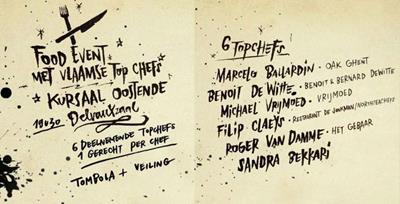 FOOD EVENT
MET VLAAMSE TOP CHEFS
KURSAAL OOSTENDE
19u30 Delvauxzaal
6 DEELNEMENDE TOPCHEFS
1 GERECHT PER CHEF
TOMBOLA + VEILING
6 TOPCHEFS
MARCELO BALLARDIN · OAK GHENT
BENOIT DE WITTE · BENOIT & BERNARD DEWITTE
MICHAEL VRIJMOED · VRIJMOED
FILIP CLAEYS · RESTAURANT DE JONKMAN/NORTHSEACHEFS
ROGER VAN DAMME · HET GEBAAR
SANDRA BEKKARI